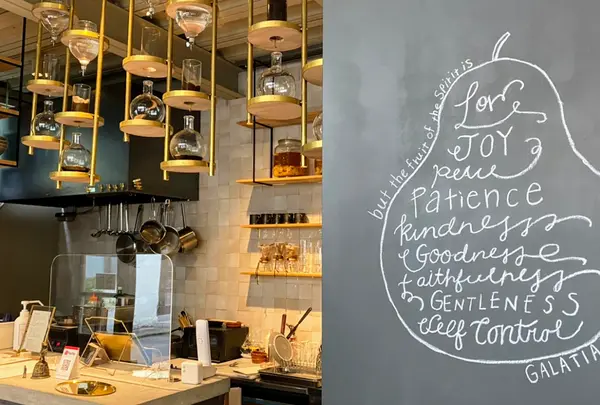 but the fruit of the spirit is
Love
JOY
peace
Patience
kindness
Goodness
faithfulness
GENTLENESS
Self Control
GALATIA